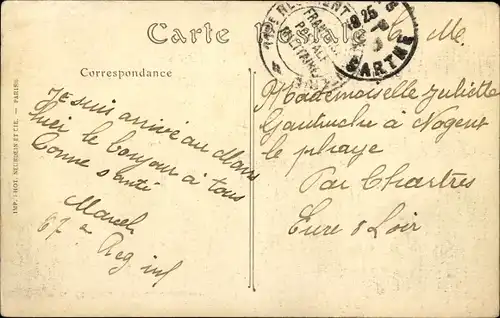 Carte Postale
Correspondance
Je suis arrivé au Mans
hier le bonjour à tous
Bonne santé
Marcel
67e Reg inf
le Me.
Mademoiselle Juliette
à Nogent
le phaye
Par Chartres
Eure & Loir
FRANCHISE
POSTALE
MILITAIRE
SARTHE
IMP. PHOT. NEURDEIN ET CIE. — PARIS.